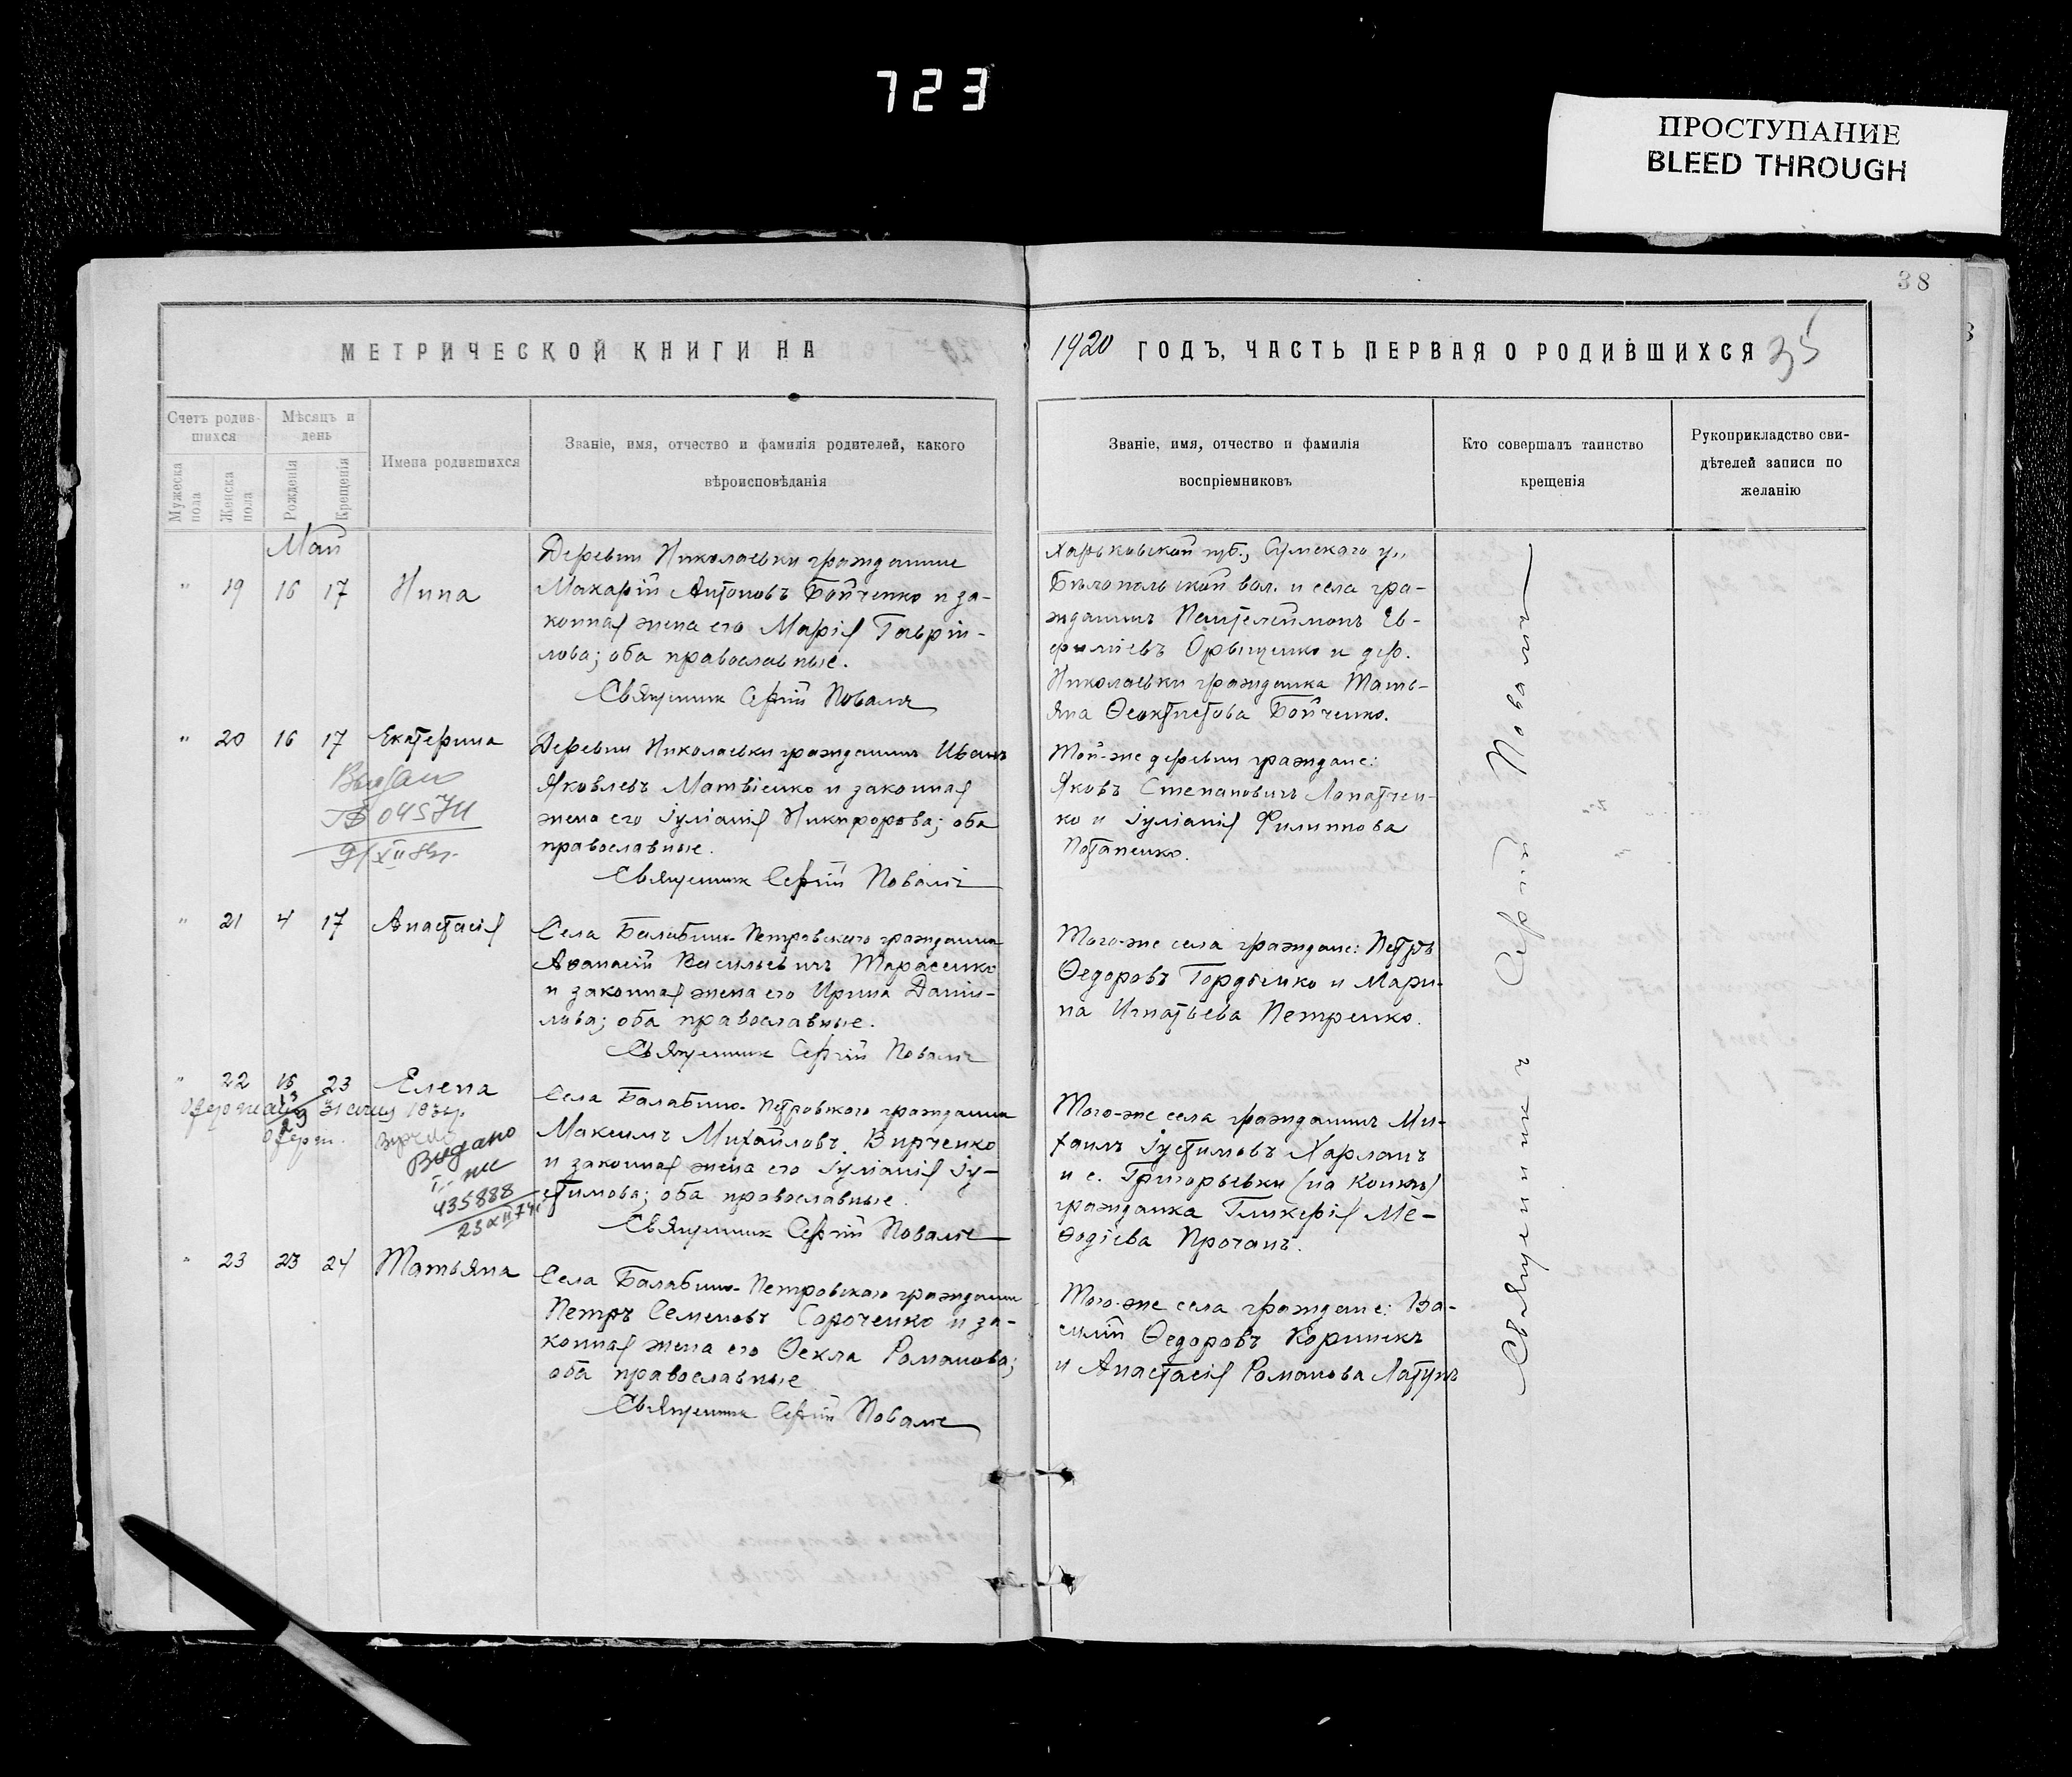 723
ПРОСТУПАНИЕ
BLEED THROUGH
38
МЕТРИЧЕСКОЙ КНИГИ НА
1920 ГОДЪ, ЧАСТЬ ПЕРВАЯ О РОДИВШИХСЯ 35
Счетъ родив-
шихся
Мужеска пола
Женска пола
Мѣсяцъ и
день
Рожденія
Крещенія
Имена родившихся
Званіе, имя, отчество и фамилія родителей, какого
вѣроисповѣданія
Званіе, имя, отчество и фамилія
воспріемниковъ
Кто совершалъ таинство
крещенія
Рукоприкладство сви-
дѣтелей записи по
желанію
Май
" 19 16 17 Нина
Деревни Николаевки гражданинъ
Макарій Антоновъ Бойченко и за-
конная жена его Марія Гаврiи-
лова; оба православные.
Священник Сергій Поваля
Харьковской губ., Сумского у.,
Бѣлопольской вол. и села гра-
жданинъ Пантелеймонъ Ев-
фиміевъ и дер.
Николаевки гражданка Тать-
яна Ѳеоктистова Бойченко.
" 20 16 17 Екатерина
Деревни Николаевки гражданинъ Иванъ
Яковлевъ Матвіенко и законная
жена его Іуліанія Никифорова; оба
православные.
Священник Сергій Поваля
Той-же деревни граждане:
Яковъ Степановичъ Лопатчен-
ко и Іуліанія Филиппова
Потапенко.
" 21 4 17 Анастасія
Села Балабино-Петровскаго гражданинъ
Аѳанасій Васильевичъ Тарасенко
и законная жена его Ирина Данiи-
лова; оба православные.
Священник Сергій Поваля
Того-же села граждане: Петръ
Ѳедоровъ Гордѣенко и Мари-
на Игнатьева Петренко.
" 22 16 23 Елена
Видано
435888
Села Балабино-Петровского гражданинъ
Максимъ Михайловъ Вирченко
и законная жена его Іуліанія Іу-
стимова; оба православные.
Священник Сергій Поваля
Того-же села гражданинъ Ми-
хаилъ Іустимовъ Харланъ
и с. Григорьевки (на Конкѣ)
гражданка Гликерія Ме-
ѳодіева Прочанъ.
" 23 23 24 Татьяна
Села Балабино-Петровскаго гражданинъ
Петръ Семеновъ Сороченко и за-
конная жена его Ѳекла Романова;
оба православные
Священник Сергій Поваля
Того-же села граждане: Ва-
силій Ѳедоровъ Коринекъ
и Анастасія Романова Латунъ
Священникъ Сергій Поваляевъ